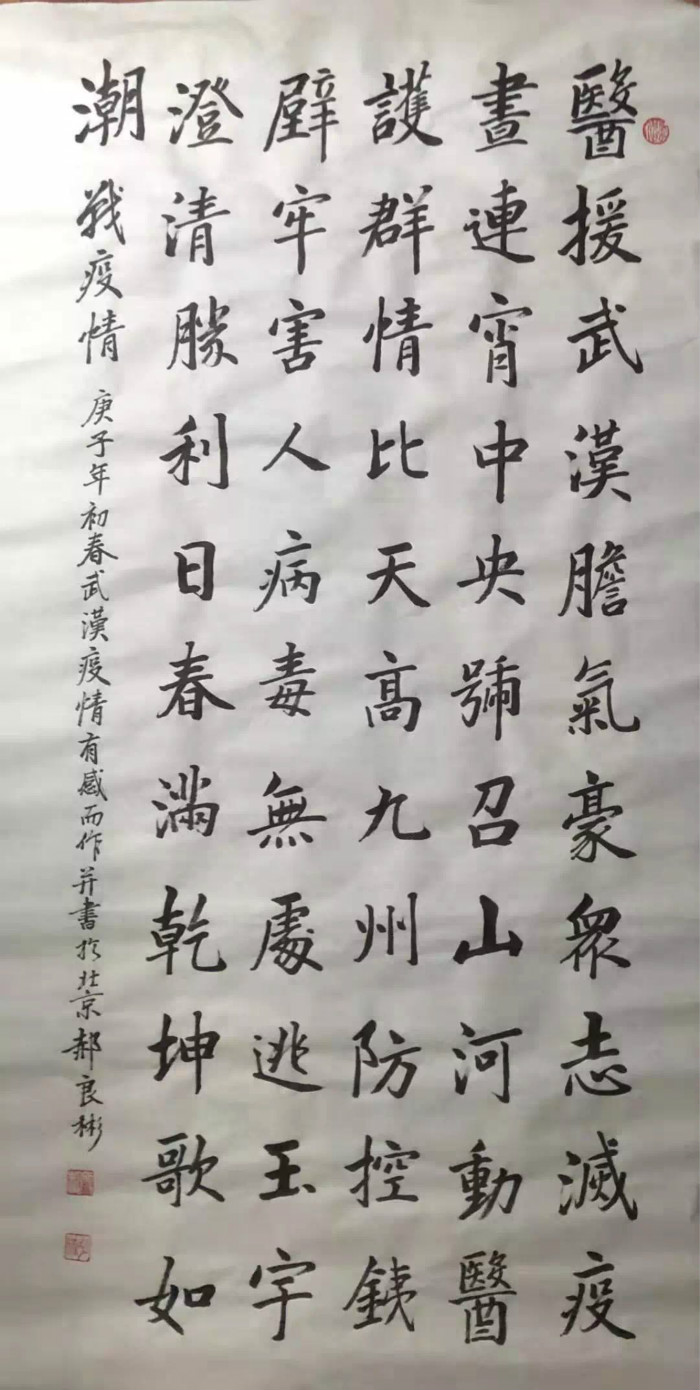 醫援武漢膽氣豪衆志滅疫
晝連宵中央號召山河動醫
護群情比天高九州防控銕
壁牢害人病毒無處逃玉宇
澄清勝利日春滿乾坤歌如
潮 戰疫情 庚子年初春武漢疫情有感而作并書於北京郝良彬